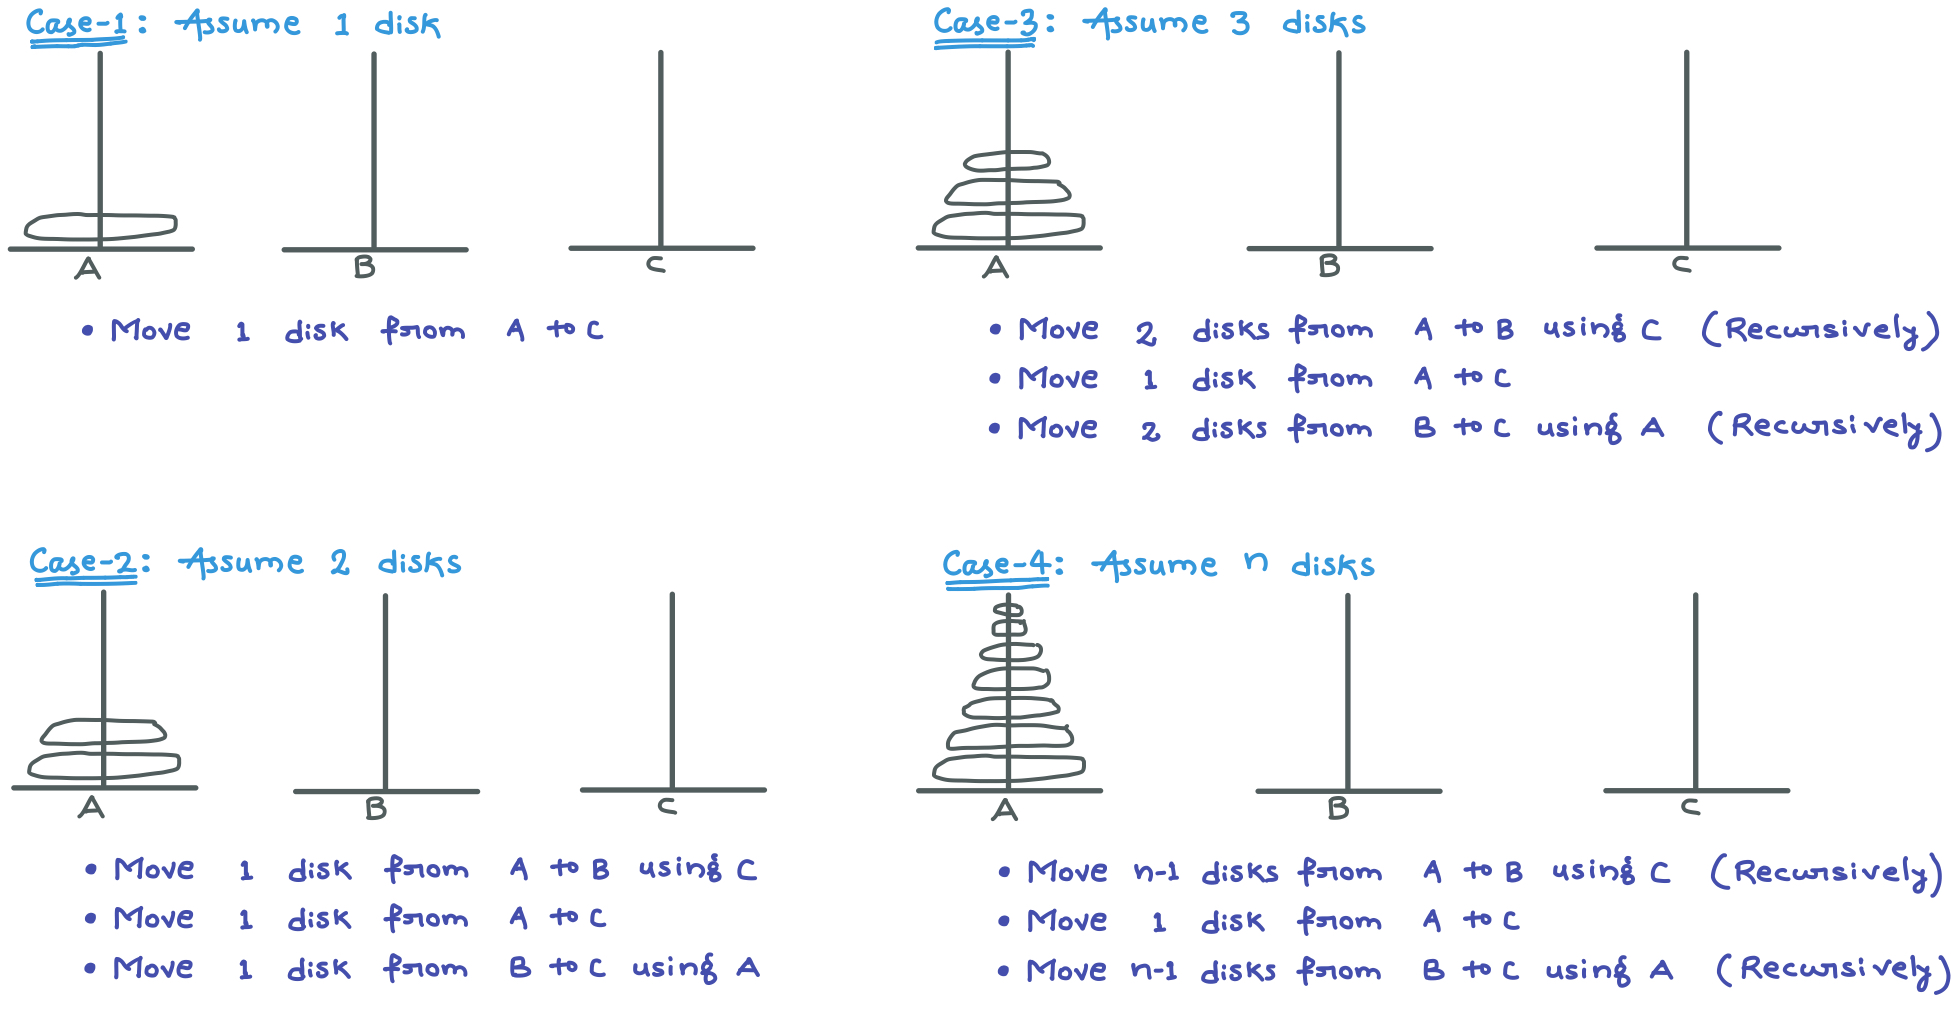 Case-1: Assume 1 disk
A B C
• Move 1 disk from A to C
Case-2: Assume 2 disks
A B C
• Move 1 disk from A to B using C
• Move 1 disk from A to C
• Move 1 disk from B to C using A
Case-3: Assume 3 disks
A B C
• Move 2 disks from A to B using C (Recursively)
• Move 1 disk from A to C
• Move 2 disks from B to C using A (Recursively)
Case-4: Assume n disks
A B C
• Move n-1 disks from A to B using C (Recursively)
• Move 1 disk from A to C
• Move n-1 disks from B to C using A (Recursively)